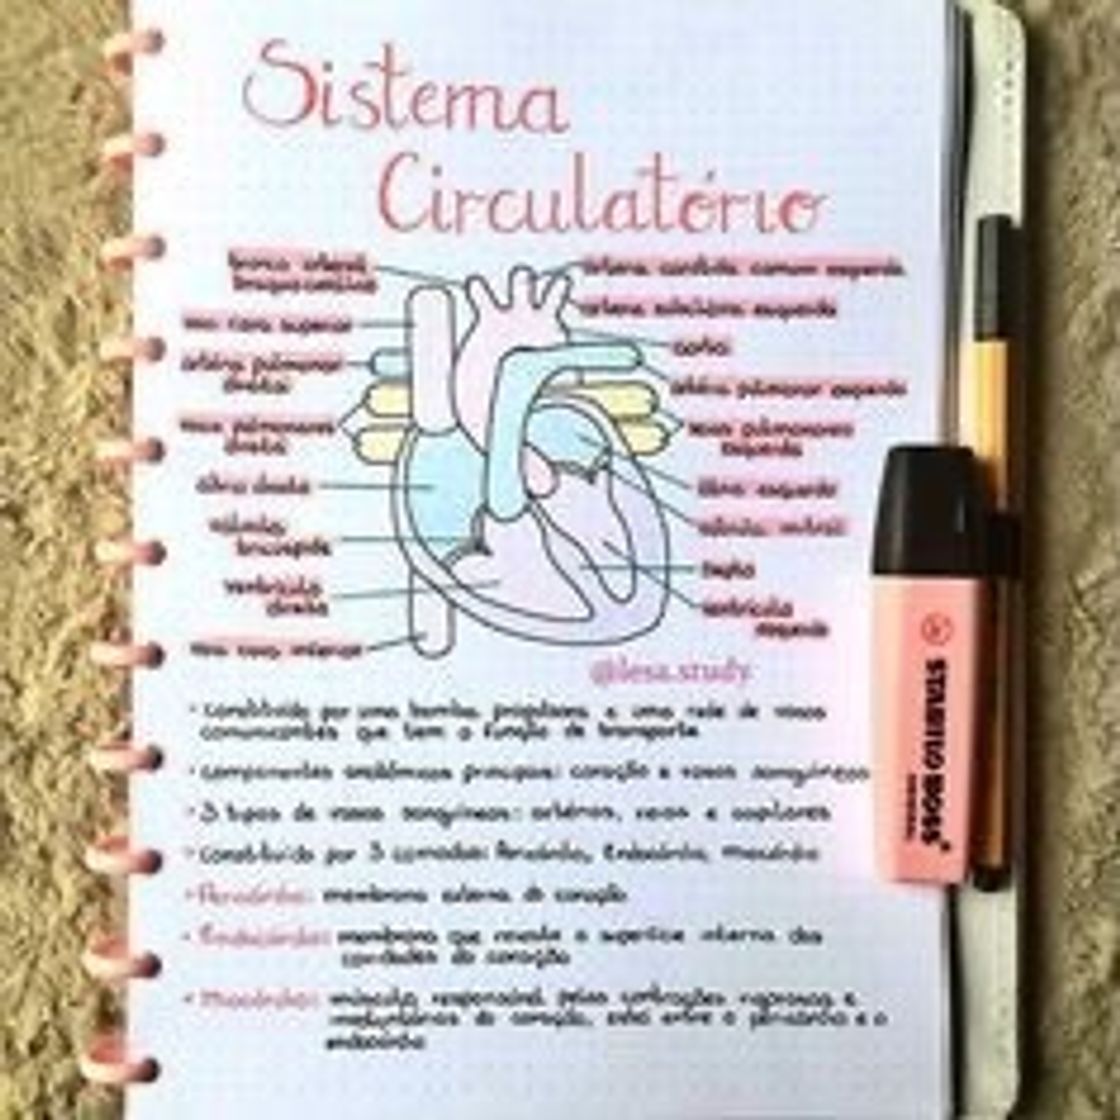 Sistema
Circulatório
tronco arterial
braquiocefálico
veia cava superior
artéria pulmonar
direita
veias pulmonares
direita
átrio direito
válvula
tricúspide
ventrículo
direito
veia cava inferior
artéria carótida comum esquerda
artéria subclávia esquerda
aorta
artéria pulmonar esquerda
veias pulmonares
esquerda
átrio esquerdo
válvula mitral
septo
ventrículo
esquerdo
@lesa.study
• constituído por uma bomba propulsora e uma rede de vasos
comunicantes que tem a função de transporte
• componentes anatômicos principais: coração e vasos sanguíneos
• 3 tipos de vasos sanguíneos: artérias, veias e capilares
• constituído por 3 camadas: Pericárdio, Endocárdio, miocárdio
• Pericárdio: membrana externa do coração
• Endocárdio: membrana que reveste a superfície interna das
cavidades do coração
• Miocárdio: músculo responsável pelas contrações vigorosas e
involuntárias do coração, está entre o pericárdio e o
endocárdio
STABILO BOSS
ORIGINAL